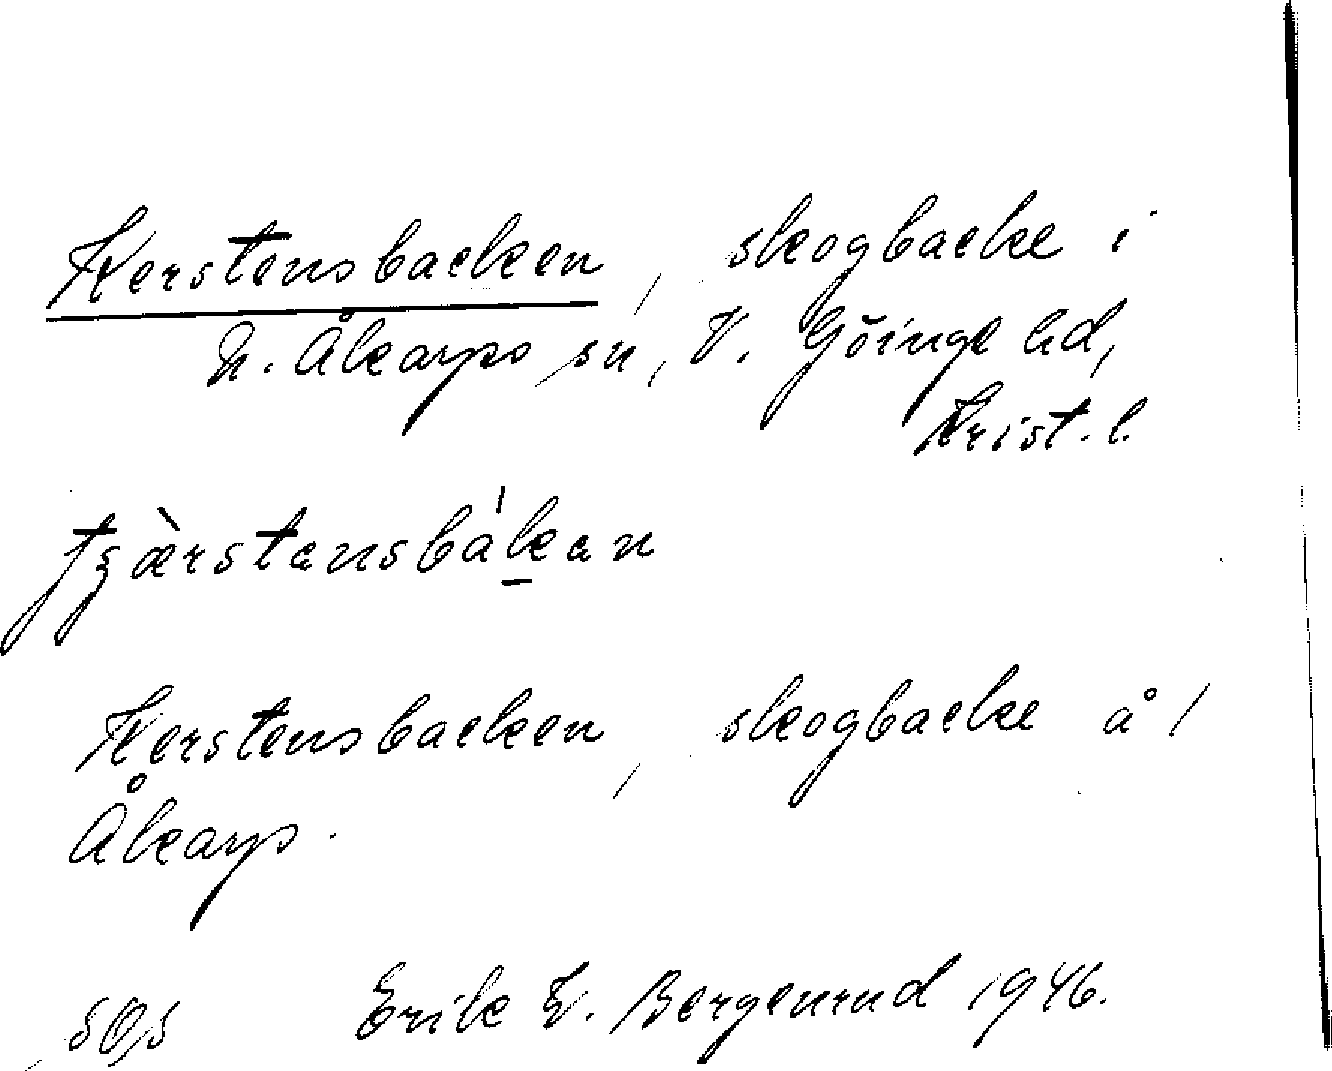 Kerstensbacken, skogbacke i
N. Åkarps sn, V. Göinge hd,
Krist. l.
tʒæ̀rstansbákan
Kerstensbacken, skogbacke å 1
Åkarp.
Erik W. Bergenrud 1946.